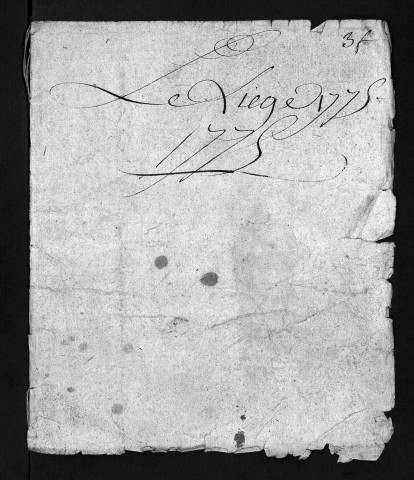 3f
Le Liège 1775
1775